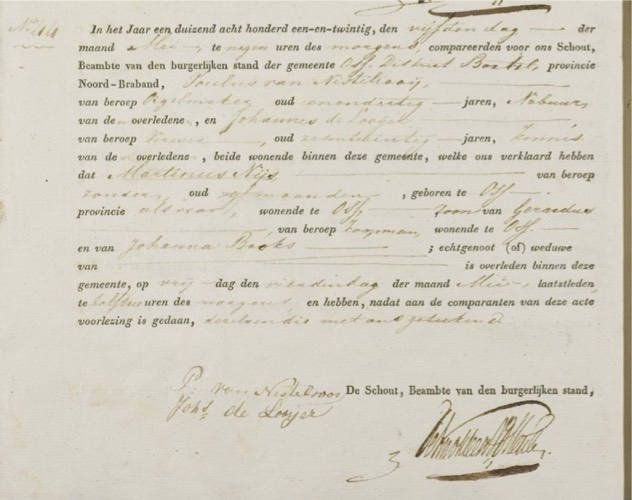 N.º 14
In het Jaar een duizend acht honderd een-en-twintig, den vijfden dag der
maand Mei, te negen uren des morgens, compareerden voor ons Schout,
Beambte van den burgerlijken stand der gemeente Oss, District Boxtel, provincie
Noord-Braband, van Nistelrooij,
van beroep Orgelmaker, oud jaren, Nabuur
van den overledene, en Johannes de Looijer
van beroep oud jaren, Kennis
van de overledene, beide wonende binnen deze gemeente, welke ons verklaard hebben
dat Martinus Nijs van beroep
zonder, oud maanden, geboren te Oss
provincie als voor, wonende te Oss, Zoon van Gerardus
van beroep Koopman, wonende te Oss
en van Johanna ; echtgenoot (of) weduwe
van is overleden binnen deze
gemeente, op vrij dag den dag der maand Mei, laatstleden,
te uren des morgens, en hebben, nadat aan de comparanten van deze acte
voorlezing is gedaan, dezelven die met ons getekend
P. van Nistelrooij De Schout, Beambte van den burgerlijken stand,
Johs de Looijer